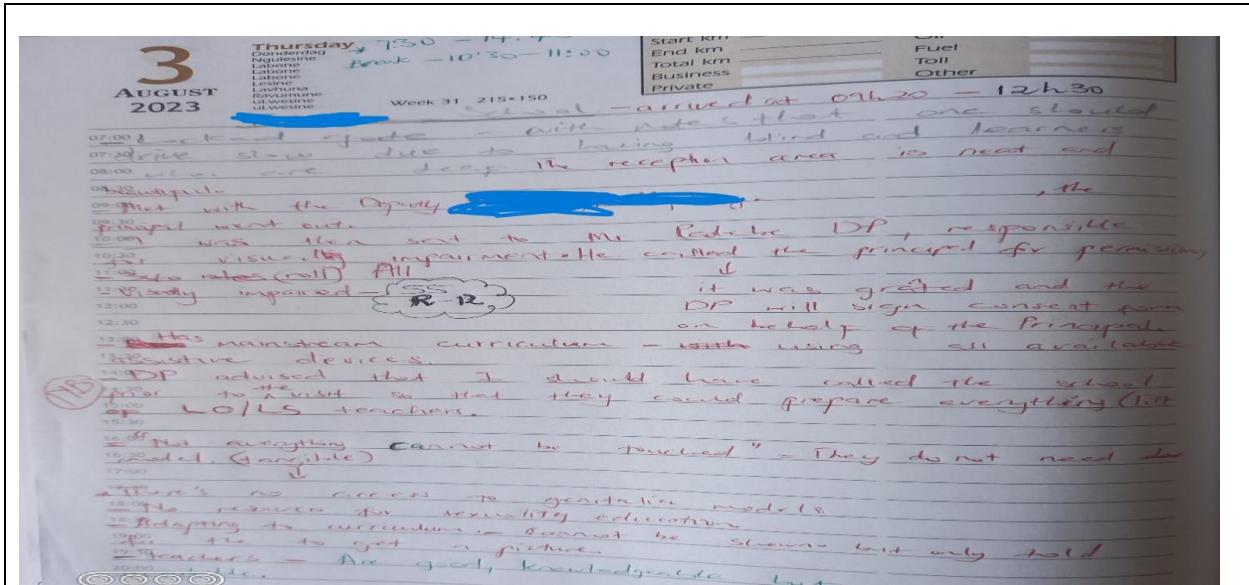 3
AUGUST
2023
Thursday 7:30 - 14:
Donderdag Break - 10:30 - 11:00
Ngulesine
Labone
Labone
Labone
Lesine
Lavhuna
Ravumune
uLwesine
uLwesine
Week 31 215•150
Start km
End km
Total km
Business
Private
Oil
Fuel
Toll
Other
School - arrived at 09h20 - 12h30
07:00 gate - with notes that one should
07:30 drive slow due to having blind and learners
08:00 who are deaf The reception area is neat and
08:30 beautiful.
09:00 Met with the Deputy , the
09:30 principal went out.
10:00 was then sent to Mr DP, responsible
10:30 for visually impairment. He called the principal for permission,
11:00 (roll) All
11:30 Visually impaired - SS R-12 it was grated and the
12:00 DP will sign consent form
12:30 on behalf of the Principal.
13:00 Has mainstream curriculum - with using all available
13:30 assistive devices.
14:00 DP advised that I should have called the school
NB 14:30 prior to the visit so that they could prepare everything (lift
15:00 of LO/LS teachers.
15:30
16:00 "Not everything cannot be touched" - They do not need
16:30 model. (tangible)
17:00
There's no access to genitalia models
18:00 No resources for sexuality education
Adapting to curriculum - cannot be shown but only told
19:00 to get a picture.
19:30 teachers - Are good, knowledgeable but
20:00